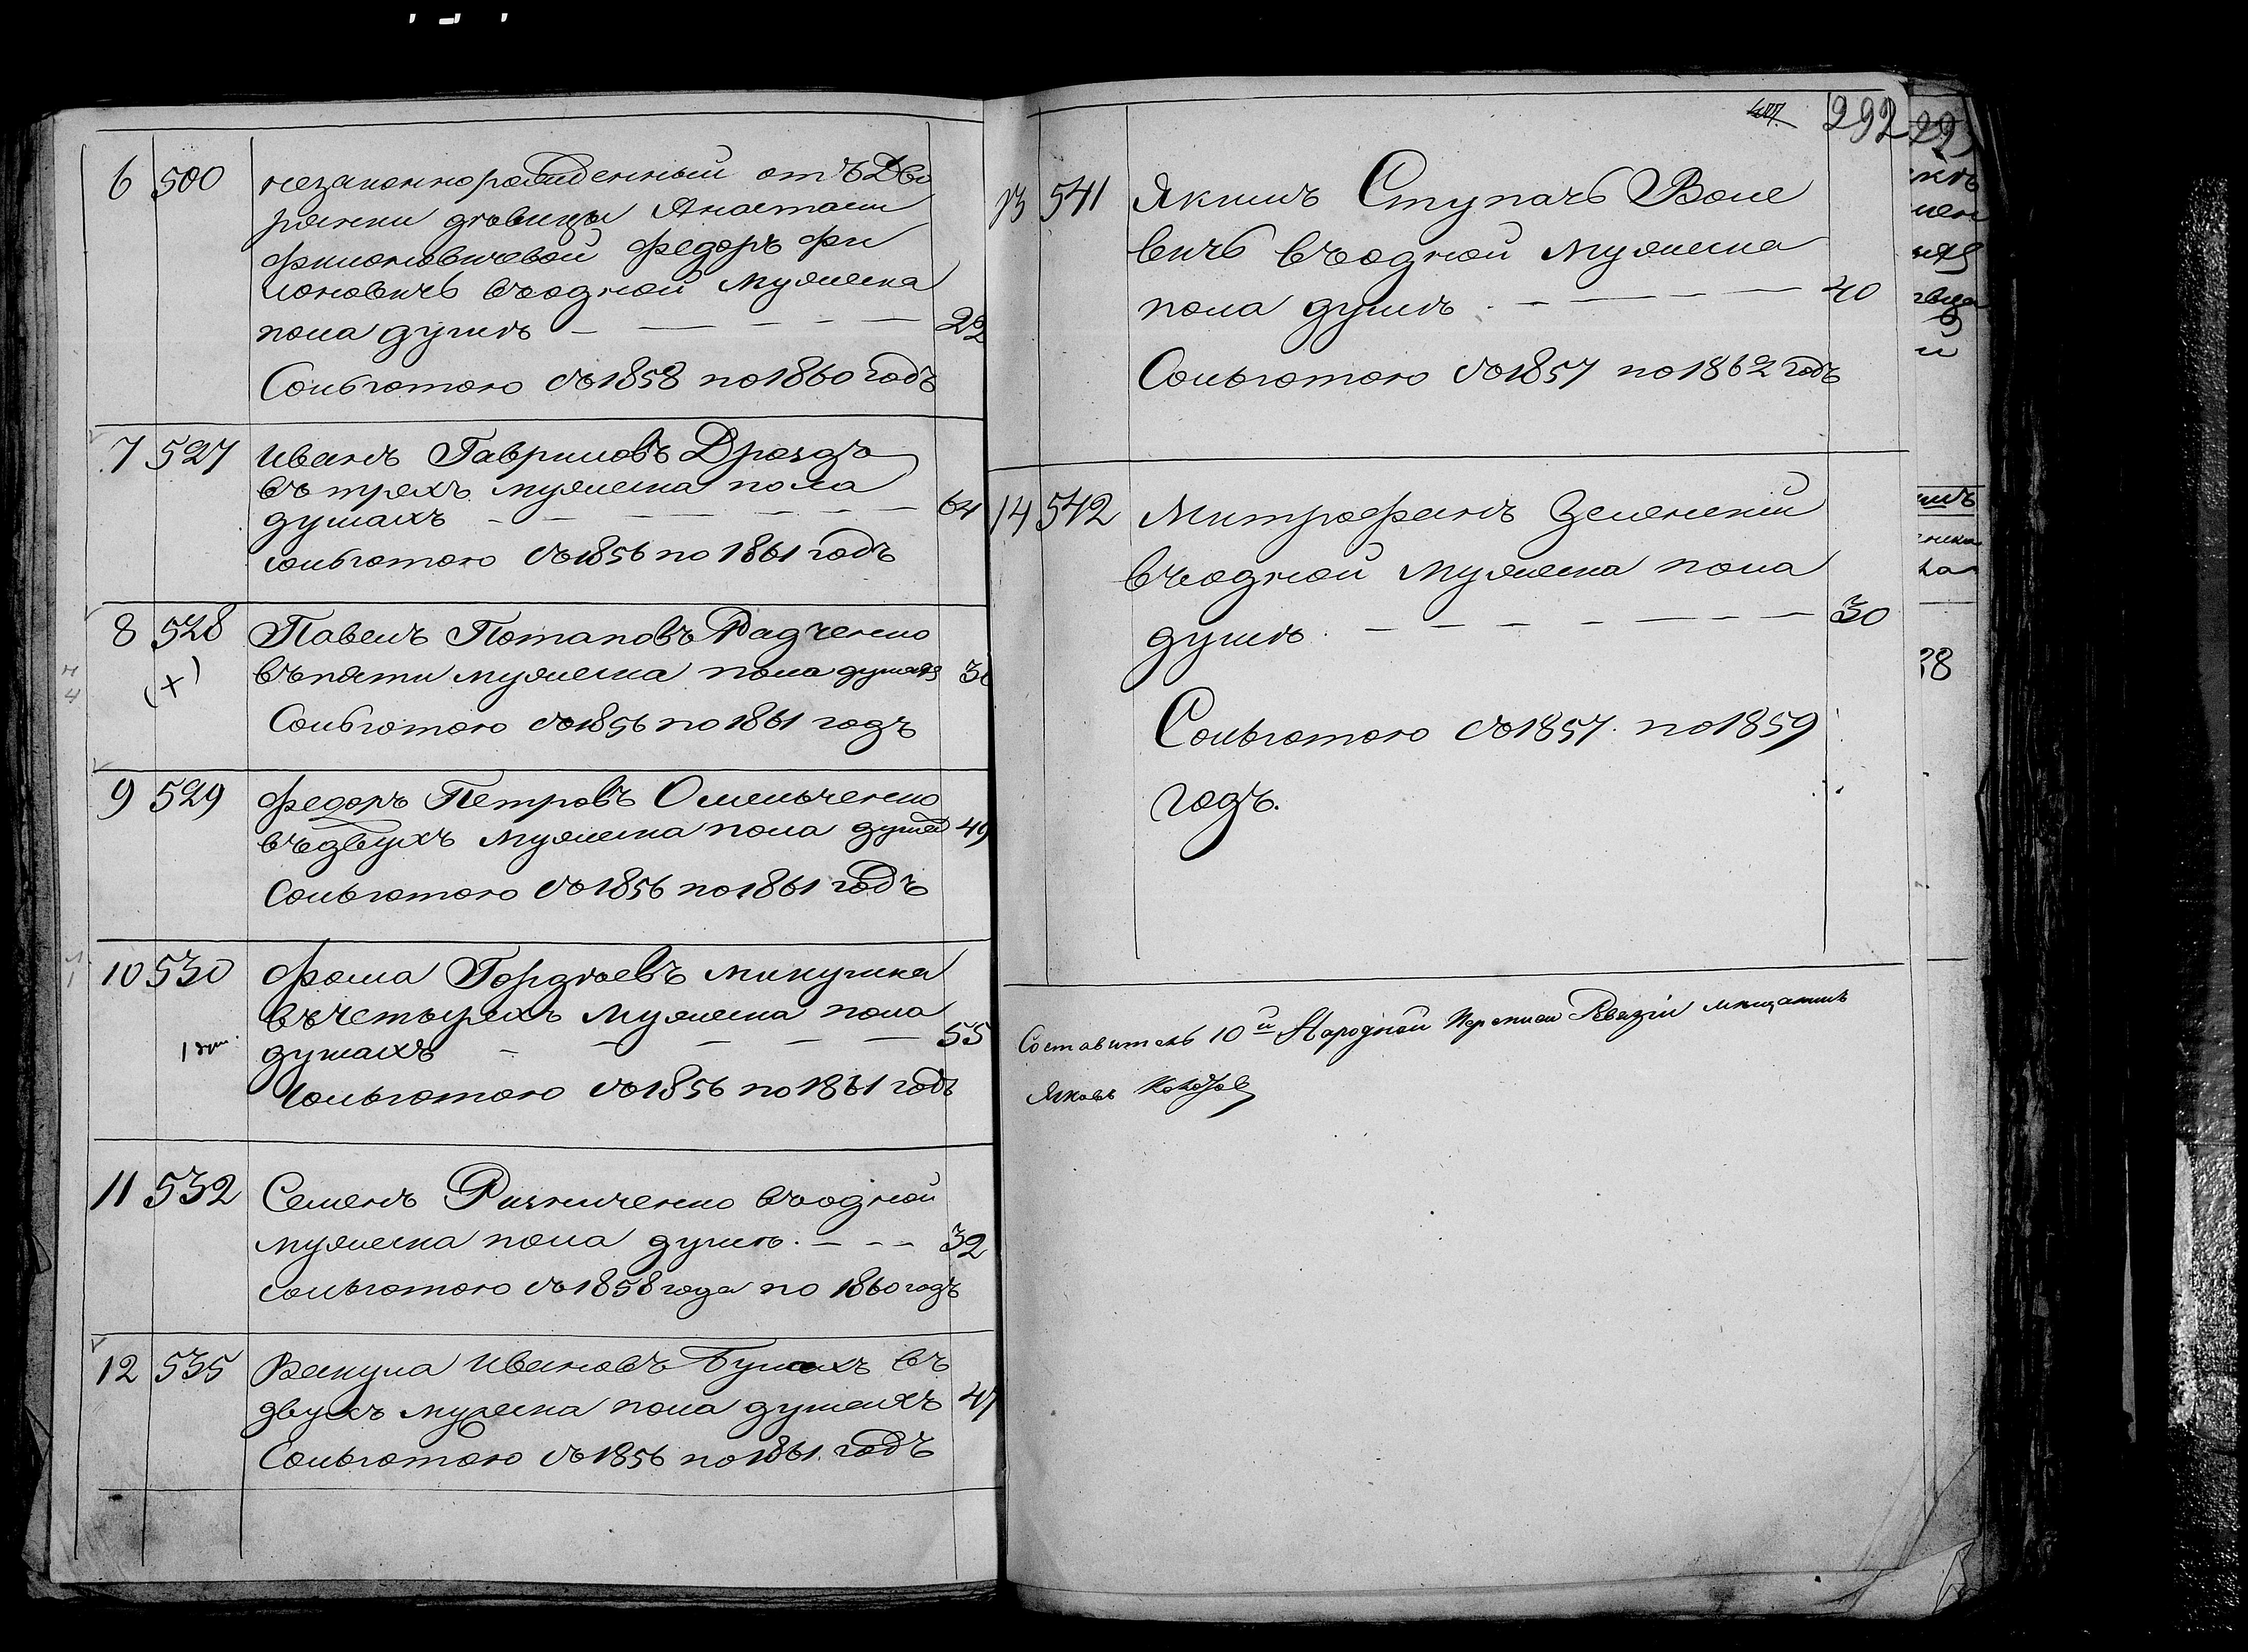 6 500 незаконнорожденный отъ Дво
рянки дѣвицы Анастасіи
Филоновичевой Федоръ Фи
лоновичъ въ одной мужеска
пола душѣ 22
Сольготою съ 1858 по 1860 годъ
7 527 Иванъ Гавриловъ Дроздъ
въ трехъ мужеска пола
душахъ 64
сольготою съ 1856 по 1861 годъ
8 528 Павелъ Потаповъ Радченко
(x) въ пяти мужеска пола душахъ
Сольготою съ 1856 по 1861 годъ
9 529 Федоръ Петровъ Омельченко
въ двухъ мужеска пола душах 49
Сольготою съ 1856 по 1861 годъ
10 530 Фома Гордѣевъ Микушка
въ четырехъ мужеска пола
душахъ 55
Сольготою съ 1856 по 1861 годъ
11 532 Семенъ Ризниченко въ одной
мужеска пола душѣ 32
сольготою съ 1858 года по 1860 годъ
12 535 Вакула Ивановъ въ
двухъ мужеска пола душахъ 47
Сольготою съ 1856 по 1861 годъ
292
13 541 Якимъ Ступачъ Воле
вичъ въ одной мужеска
пола душѣ 40
Сольготою съ 1857 по 1862 годъ
14 542 Митрофанъ Зеленскій
въ одной мужеска пола
душѣ 30
Сольготою съ 1857 по 1859
годъ.
Составитель 10й Народной Переписи Ревизіи мещанинъ
Яковъ